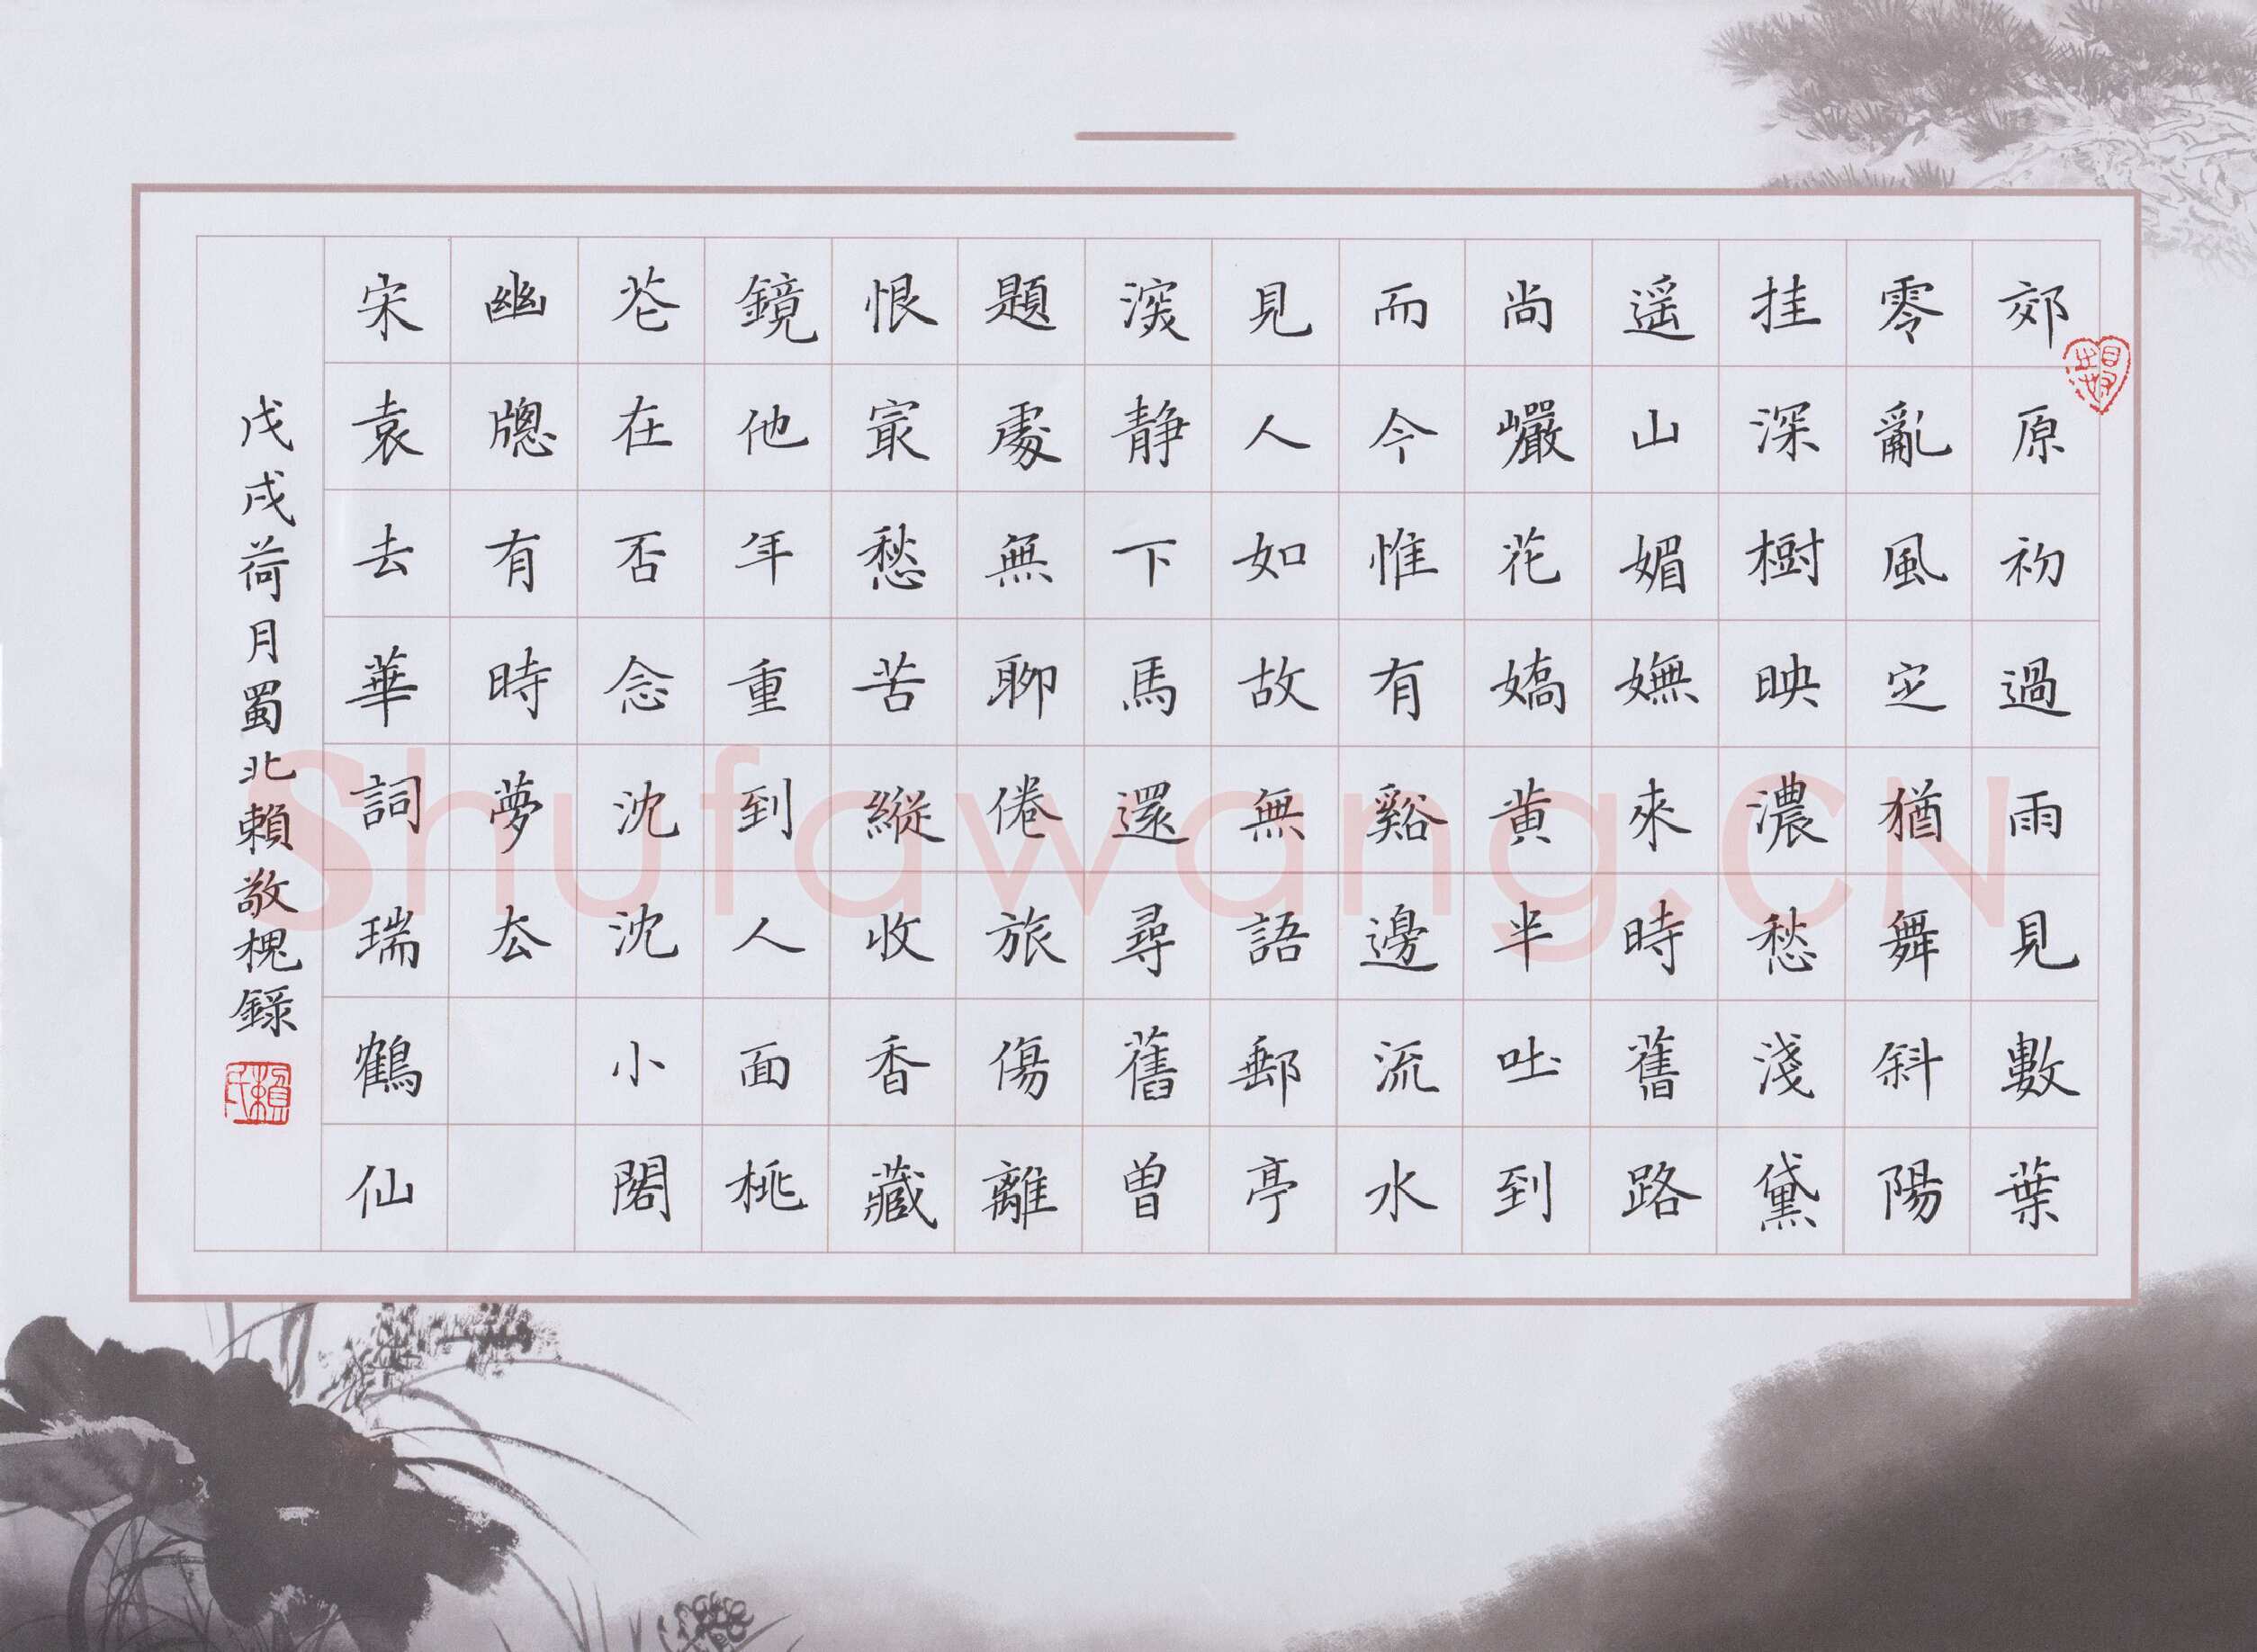 郊原初過雨見數葉
零亂風定猶舞斜陽
挂深樹映濃愁淺黛
遥山媚嫵來時舊路
尚巖花嬌黄半吐到
而今惟有谿邊流水
見人如故無語郵亭
深静下馬還尋舊曾
題處無聊倦旅傷離
恨最愁苦縱收香藏
鏡他年重到人面桃
花在否念沈沈小閣
幽牕有時夢去
宋袁去華詞瑞鶴仙
戊戌荷月蜀北賴敬槐録
賴氏
Shufawang.CN